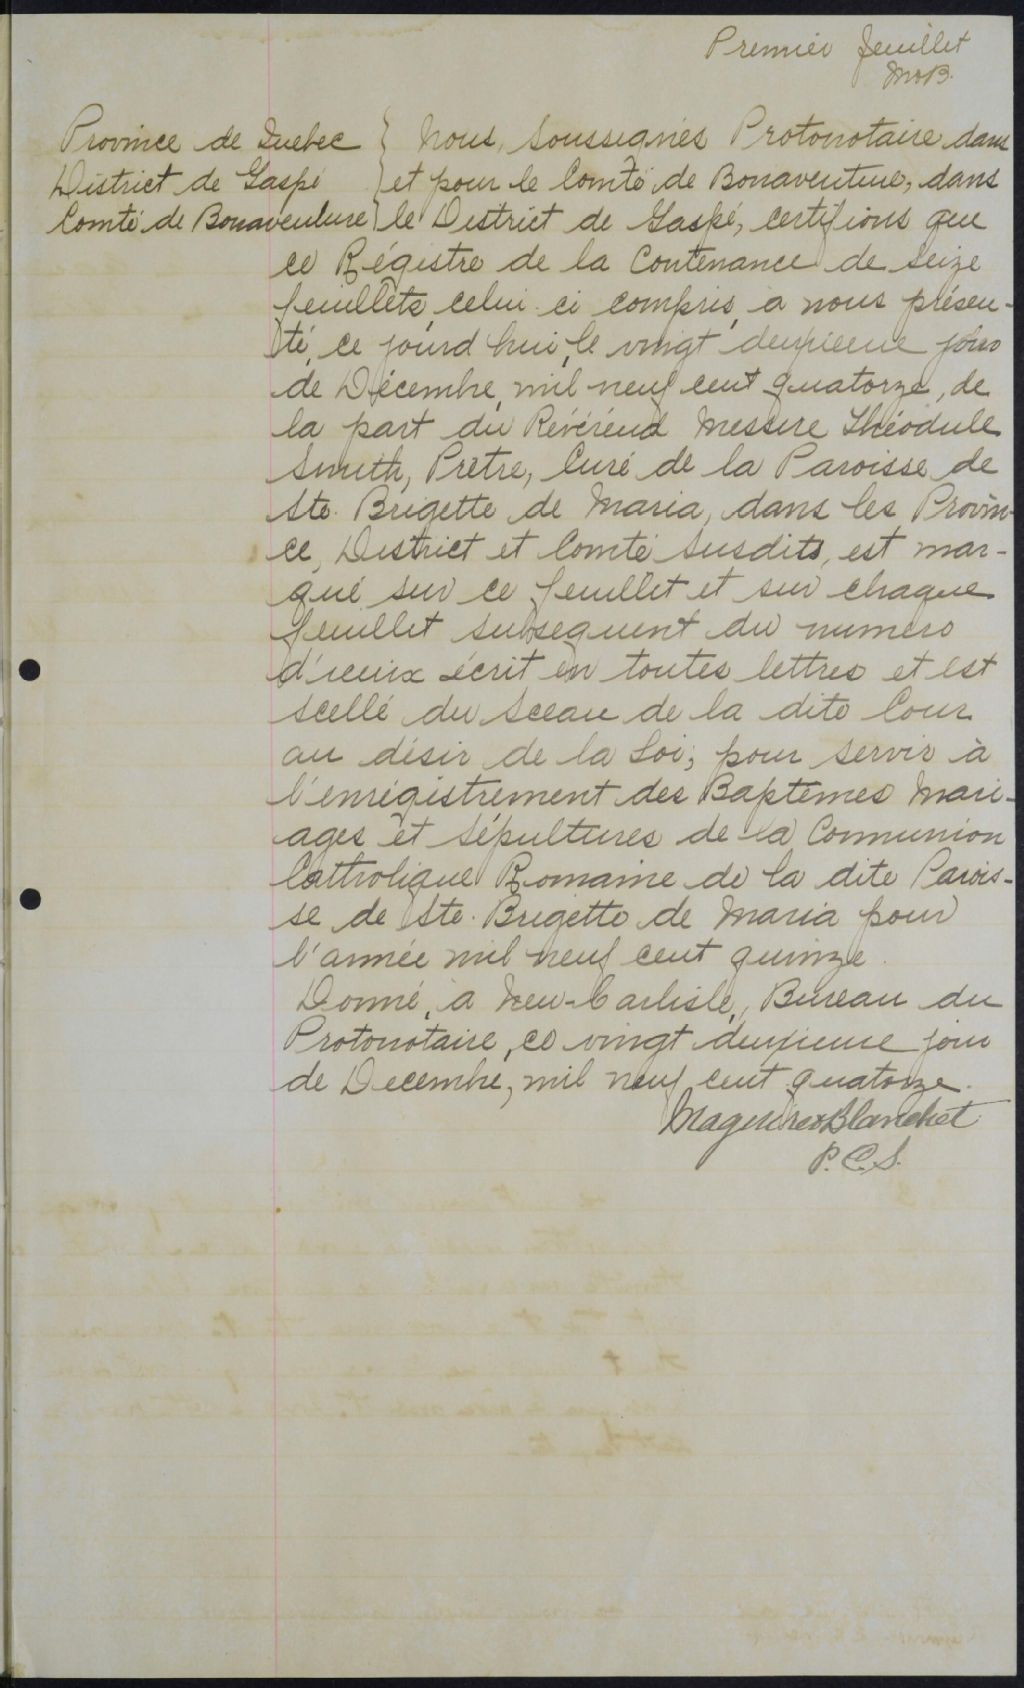 Premier feuillet
M&B.
Province de Quebec } Nous, soussignés Protonotaire dans
District de Gaspé } et pour le Comté de Bonaventure, dans
Comté de Bonaventure } le District de Gaspé, certifions que
ce Régistre de la Contenance de seize
feuillets, celui ci compris, a nous présen-
té, ce jourd'hui, le vingt deuxieme jour
de Décembre, mil neuf cent quatorze, de
la part du Révérend Messire Théodule
Smith, Prètre, Curé de la Paroisse de
Ste. Brigette de Maria, dans les Provin-
ce, District et Comté susdits, est mar-
qué sur ce feuillet et sur chaque
feuillet subsequent du numero
d'iceux écrit en toutes lettres et est
scellé du Sceau de la dite Cour
au désir de la Loi; pour servir à
l'enrégistrement des Baptemes Mari-
ages et Sépultures de la Communion
Catholique Romaine de la dite Parois-
se de Ste. Brigette de Maria pour
l'année mil neuf cent quinze.
Donné, a New-Carlisle, Bureau du
Protonotaire, ce vingt deuxieme jour
de Decembre, mil neuf cent quatorze.
Blanchet
P.C.S.